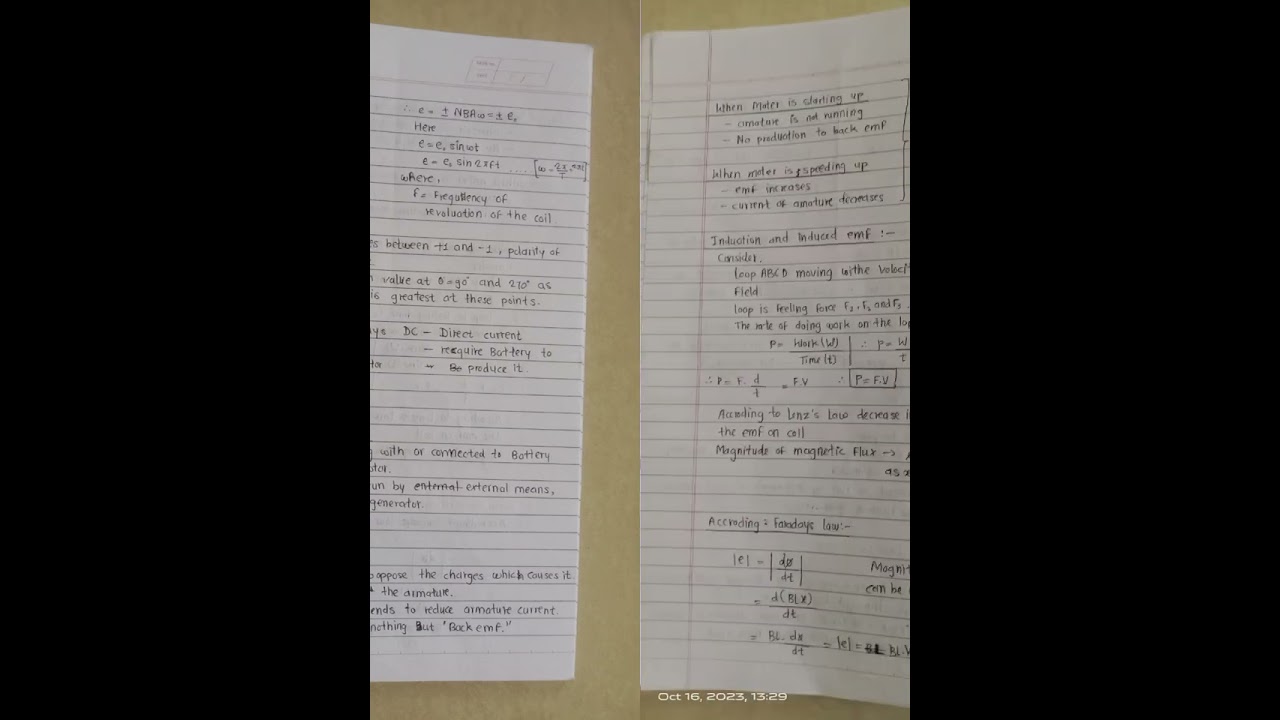 ∴ e = ± NBAω = ± e₀
Here
e = e₀ sin ωt
e = e₀ sin 2πft ....
where,
f = Freguttency of
revoluation of the coil.
es between +1 and -1, polarity of
value at θ = 90° and 270° as
is greatest at these points.
ys DC - Direct current
- recquire Battery to
tor - Be produce it.
g with or connected to Battery
otor.
un by enternal external means,
generator.
oppose the charges which causes it
the armature.
ends to reduce armature current.
nothing But "Back emf."
When Moter is starting up
- armature is not running
- No production to back emf
When moter is speeding up
- emf increases
- current of amature decreases
Induction and Induced emf :-
Consider.
loop ABCD moving withe Veloci
Field
loop is feeling force F₂, F₁ and F₃.
The rate of doing work on the loo
P = Work (W) / Time (t) | ∴ P = W / t
∴ P = F. d/t = F.V ∴ P = F.V
Accroding to Lenz's Law decrease i
the emf on coil
Magnitude of magnetic Flux →
as x
Accroding = Faradays law:-
|e| = |dø/dt| Magnit
can be
= d(BLx)/dt
= BL. dx/dt = |e| = BL BL.V
Oct 16, 2023, 13:29